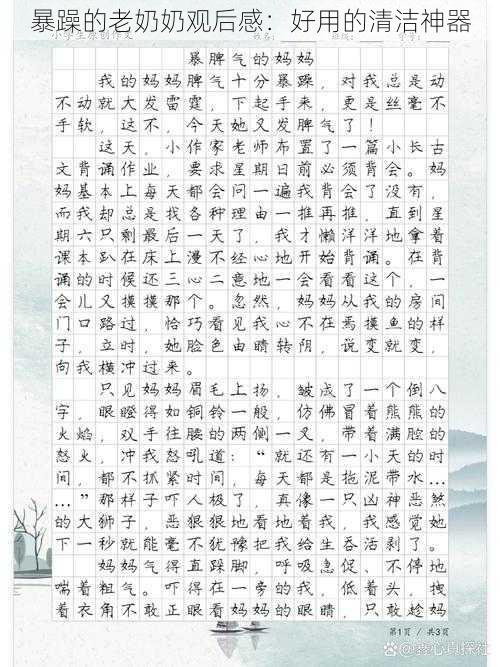 暴躁的老奶奶观后感：好用的清洁神器
小学生原创作文
暴脾气的妈妈
我的妈妈脾气十分暴躁，对我总是动
不动就大发雷霆，下起手来，更是丝毫不
手软，这不，今天她又发脾气了！
这天，小作家老师布置了一篇小长古
文背诵作业，要求星期日前必须背会。妈
妈基本上每天都会问一遍我背会了没有，
而我却总是找各种理由一推再推，直到星
期六只剩最后一天了，我才懒洋洋地拿着
课本趴在床上漫不经心地开始背诵。在背
诵的时候还三心二意地一会看看这个，一
会儿又摸摸那个。忽然，妈妈从我的房间
门口路过，恰巧看见我心不在焉摸鱼的样
子，立时，她脸色由晴转阴，说变就变，
向我横冲过来。
只见妈妈眉毛上扬，皱成了一个倒八
字，眼瞪得如铜铃一般，仿佛冒着熊熊的
火焰，双手往腰的两侧一叉，带着满腔的
怒火，冲我怒吼道：“就还有一小天的时
间，都不抓紧时间，每天都是拖泥带水…
…”那样子吓人极了，真像一只凶神恶煞
的大狮子，恶狠狠地看地着我，我感觉她
下一秒就能毫不犹豫把我给生吞活剥了。
妈妈气得直跺脚，呼吸急促、不停地
喘着粗气。吓得在一旁的我，低着头，拽
着衣角不敢正眼看妈妈的眼睛，只敢趁妈
第1页 / 共3页